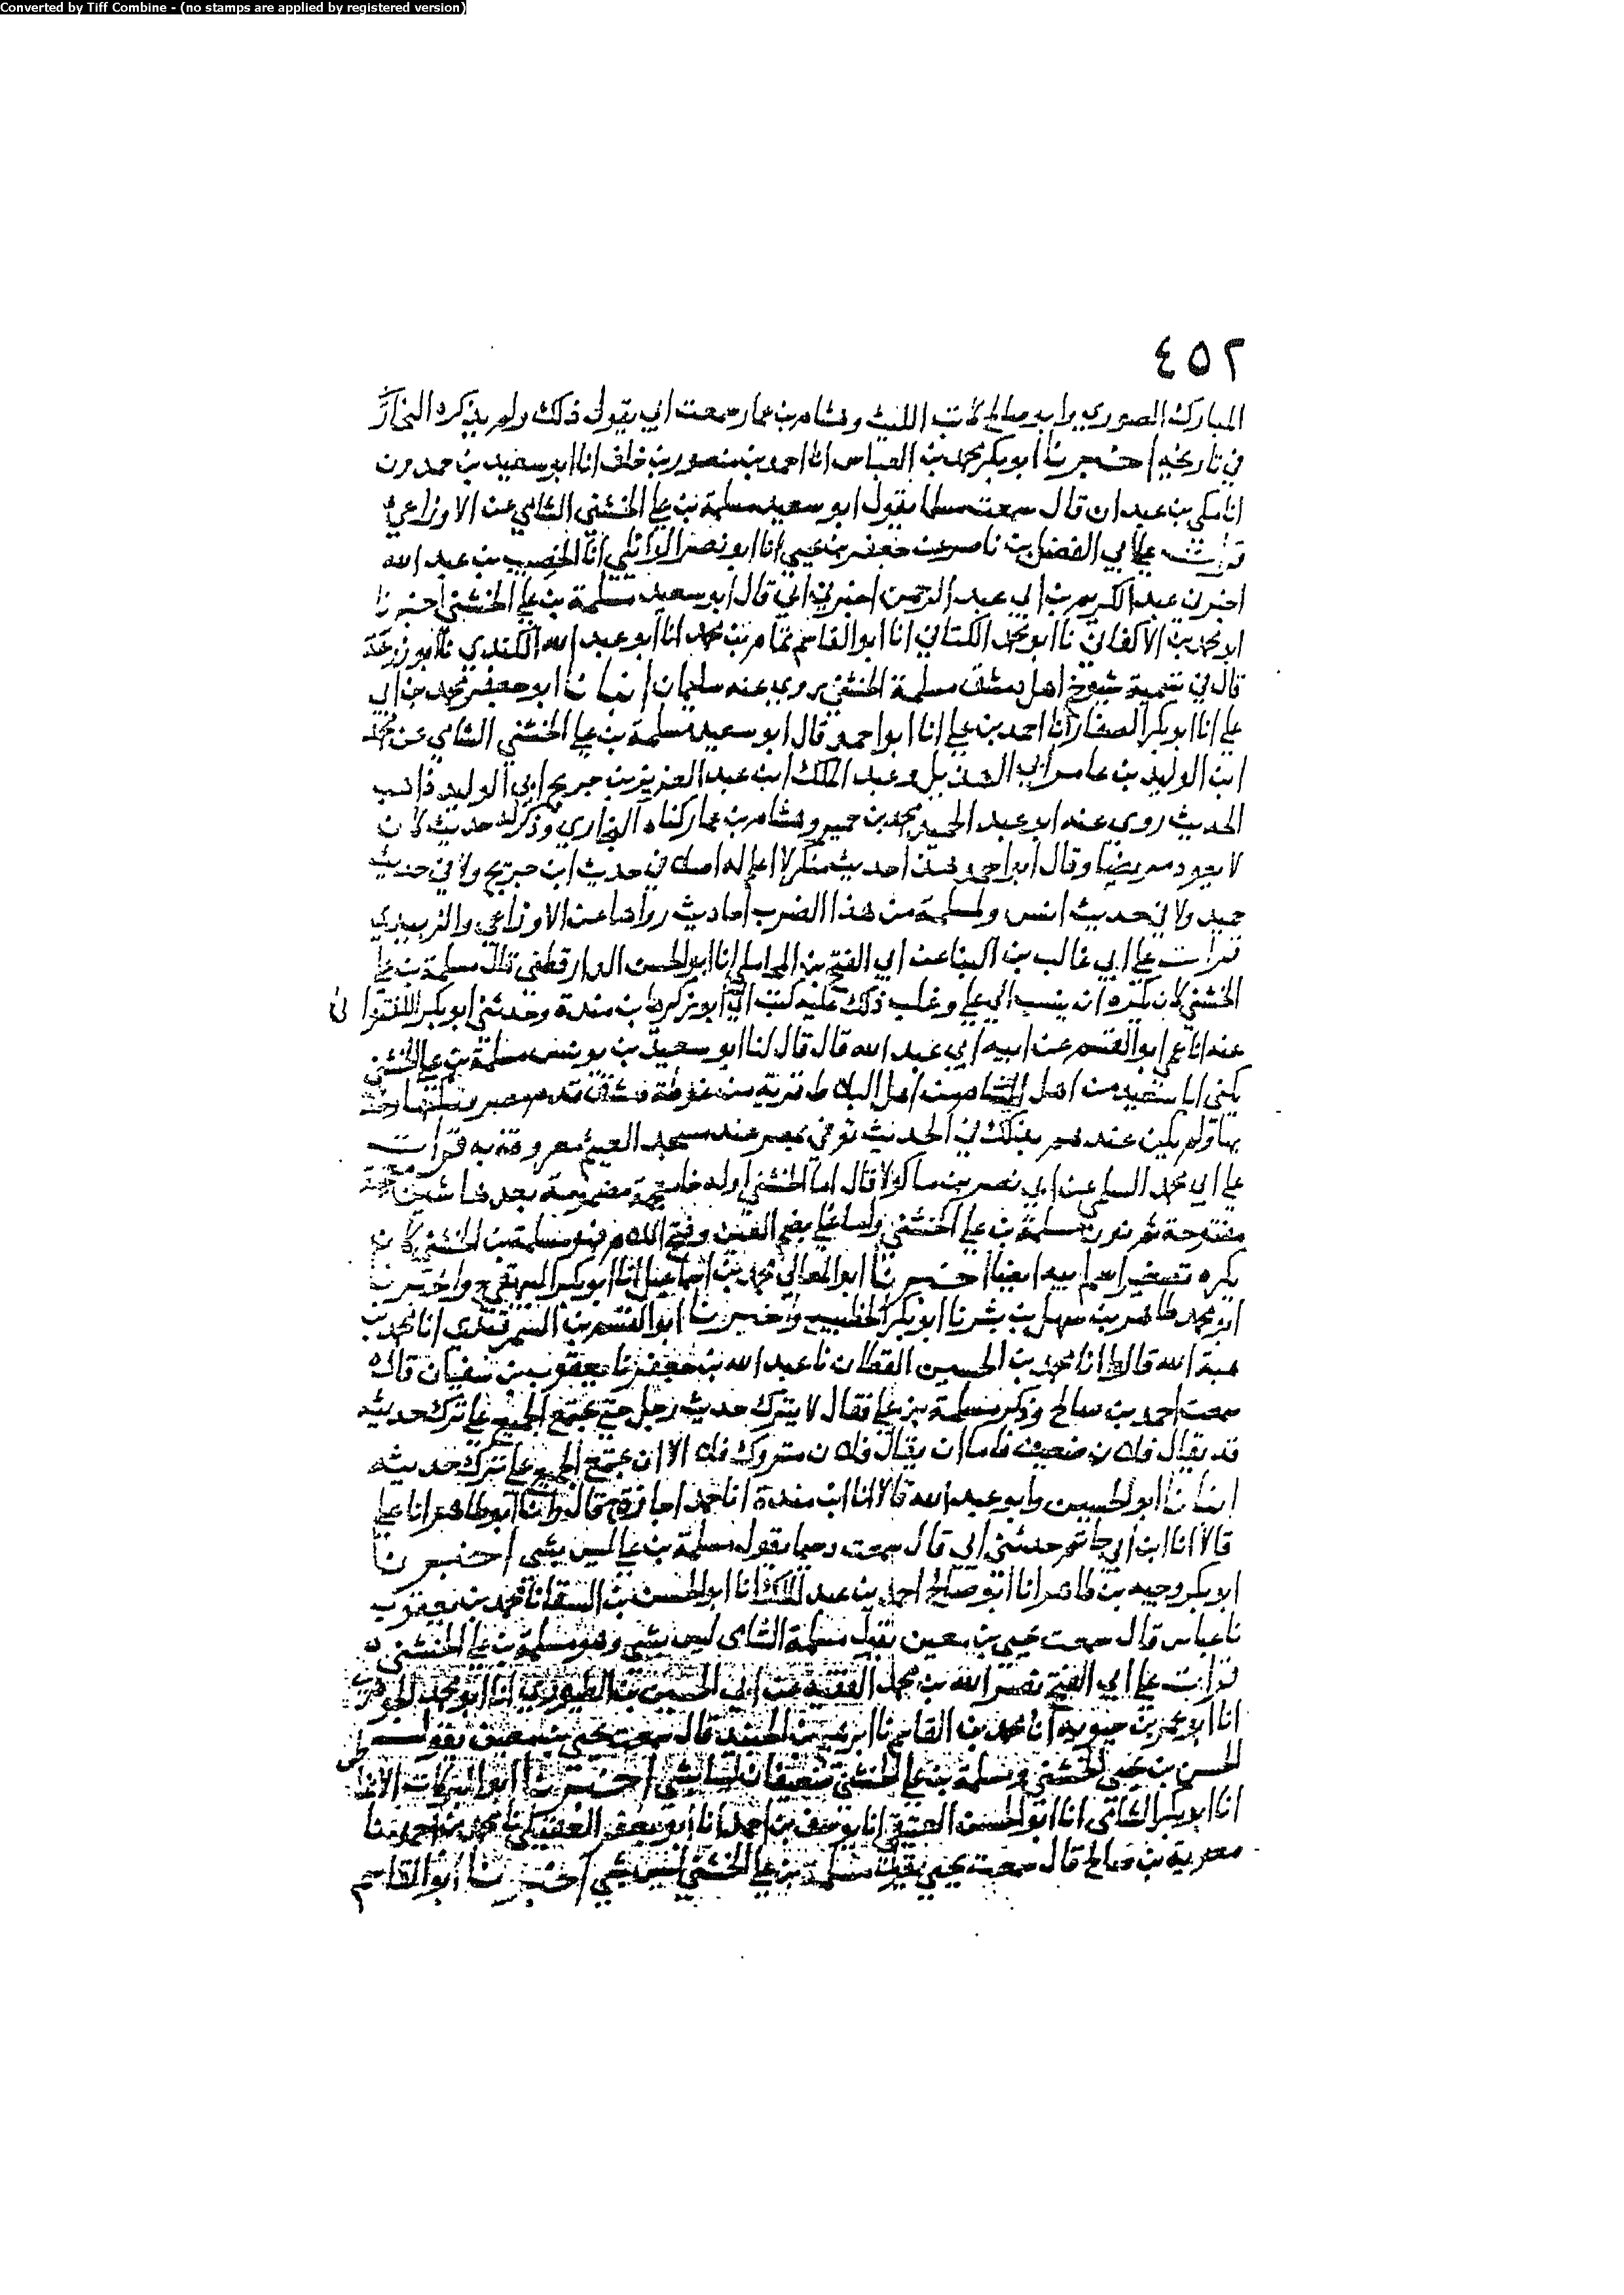 Converted by Tiff Combine - (no stamps are applied by registered version)
٤٥٢
المبارك الصوري وابو صالح كاتب الليث وهشام بن عمار سمعت ابي يقول ذلك ولم يذكره البخاري
في تاريخه اخبرنا ابو بكر محمد بن العباس انا احمد بن منصور بن خلف انا ابو سعيد بن حمدون
انا مكي بن عبدان قال سمعت مسلما يقول ابو سعيد مسلمة بن علي الخشني الشامي عن الاوزاعي
قرات على ابي الفضل بن ناصر عن جعفر بن يحيى انا ابو نصر الوائلي انا الخصيب بن عبد الله
اخبرني عبد الكريم بن ابي عبد الرحمن اخبرني ابي قال ابو سعيد مسلمة بن علي الخشني اخبرنا
ابو محمد بن الاكفاني نا ابو محمد الكتاني انا ابو القاسم تمام بن محمد انا ابو عبد الله الكندي نا ابو زرعة
قال في تسمية شيوخ اهل دمشق مسلمة الخشني يروي عنه سليمان انبانا ابو جعفر محمد بن ابي
علي انا ابو بكر الصفار انا احمد بن علي انا ابو احمد قال ابو سعيد مسلمة بن علي الخشني الشامي عن محمد
ابن الوليد بن عامر ابي الهذيل وعبد الملك ابن عبد العزيز بن جريج ابي الوليد ذاهب
الحديث روى عنه ابو عبد الحميد محمد بن حمير وهشام بن عمار كناه البخاري وذكر له حديث كان
لا يعود مريضا وقال ابو احمد هذا حديث منكر لا اعلم له اصلا في حديث ابن جريج ولا في حديث
حميد ولا في حديث انس ولمسلمة من هذا الضرب احاديث رواها عن الاوزاعي والزبيدي
قرات على ابي غالب بن البنا عن ابي الفتح بن المحاملي انا ابو الحسن الدارقطني قال مسلمة بن علي
الخشني كان يكره ان ينسب الى علي وغلب ذلك عليه كتب الي ابو زكريا بن مندة وحدثني ابو بكر اللفتواني
عنه انا عمي ابو القسم عن ابيه ابي عبد الله قال قال لنا ابو سعيد بن يونس مسلمة بن علي الخشني
يكنى ابا سعيد من اهل الشام من اهل البلاط قرية من غوطة دمشق قدم مصر وسكنها وحدث
بها ولم يكن عندهم بذلك في الحديث توفي بمصر عنده مسجد العيثم معروفة به قرات
على ابي محمد السلمي عن ابي نصر بن ماكولا قال اما الخشني اوله خا معجمة مضمومة بعدها شين معجمة
مفتوحة ثم نون مسلمة بن علي الخشني واما علي بضم العين وفتح اللام فهو مسلمة بن الخشني كان
يكره تصغير اسم ابيه ايضا اخبرنا ابو المعالي محمد بن اسماعيل انا ابو بكر البيهقي ح واخبرنا
ابو محمد طاهر بن سهل بن بشر نا ابو بكر الخطيب واخبرنا ابو القسم بن السمرقندي انا محمد بن
هبة الله قالوا انا محمد بن الحسين القطان نا عبد الله بن جعفر نا يعقوب بن سفيان قال
سمعت احمد بن صالح وذكر مسلمة بن علي فقال لا يترك حديث رجل حتى يجتمع الجميع على ترك حديثه
قد يقال فلان ضعيف فاما ان يقال فلان متروك فلا الا ان يجتمع الجميع على ترك حديثه
انبانا ابو الحسين وابو عبد الله قالا انا ابن مندة انا حمد اجازة ح قال وانا ابو طاهر انا علي
قالا انا ابن ابي حاتم حدثني ابي قال سمعت دحيما يقول مسلمة بن علي ليس بشي اخبرنا
ابو بكر وجيه بن طاهر انا ابو صالح احمد بن عبد الملك انا ابو الحسن بن السقا نا محمد بن يعقوب
نا عباس قال سمعت يحيى بن معين يقول مسلمة الشامي ليس بشي وهو مسلمة بن علي الخشني
قرات على ابي الفتح نصر الله بن محمد الفقيه عن ابي الحسين بن الطيوري انا ابو محمد الجوهري
انا ابو عمر بن حيويه انا محمد بن القاسم نا ابن الجنيد قال سمعت يحيى بن معين يقول
الحسن بن يحيى الخشني ومسلمة بن علي الخشني ضعيفان ليسا بشي اخبرنا ابو البركات الانماطي
انا ابو بكر الشامي انا ابو الحسن العتيقي انا يوسف بن احمد انا ابو جعفر العقيلي نا محمد بن احمد نا
معوية بن صالح قال سمعت يحيى يقول مسلمة بن علي الخشني ليس بشي اخبرنا ابو القاسم